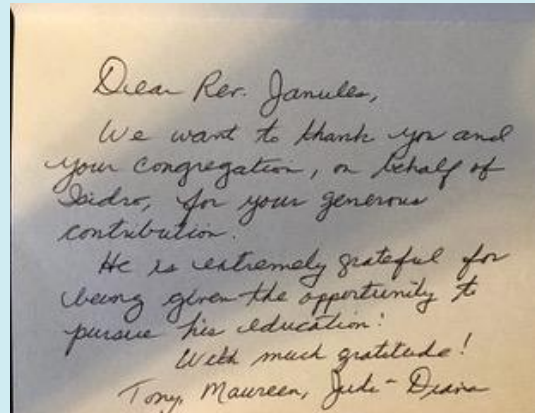 Dear Rev. Janules,
We want to thank you and
your congregation, on behalf of
Isidro, for your generous
contribution.
He is extremely grateful for
being given the opportunity to
pursue his education!
With much gratitude!
Tony, Maureen, Judi - Diana